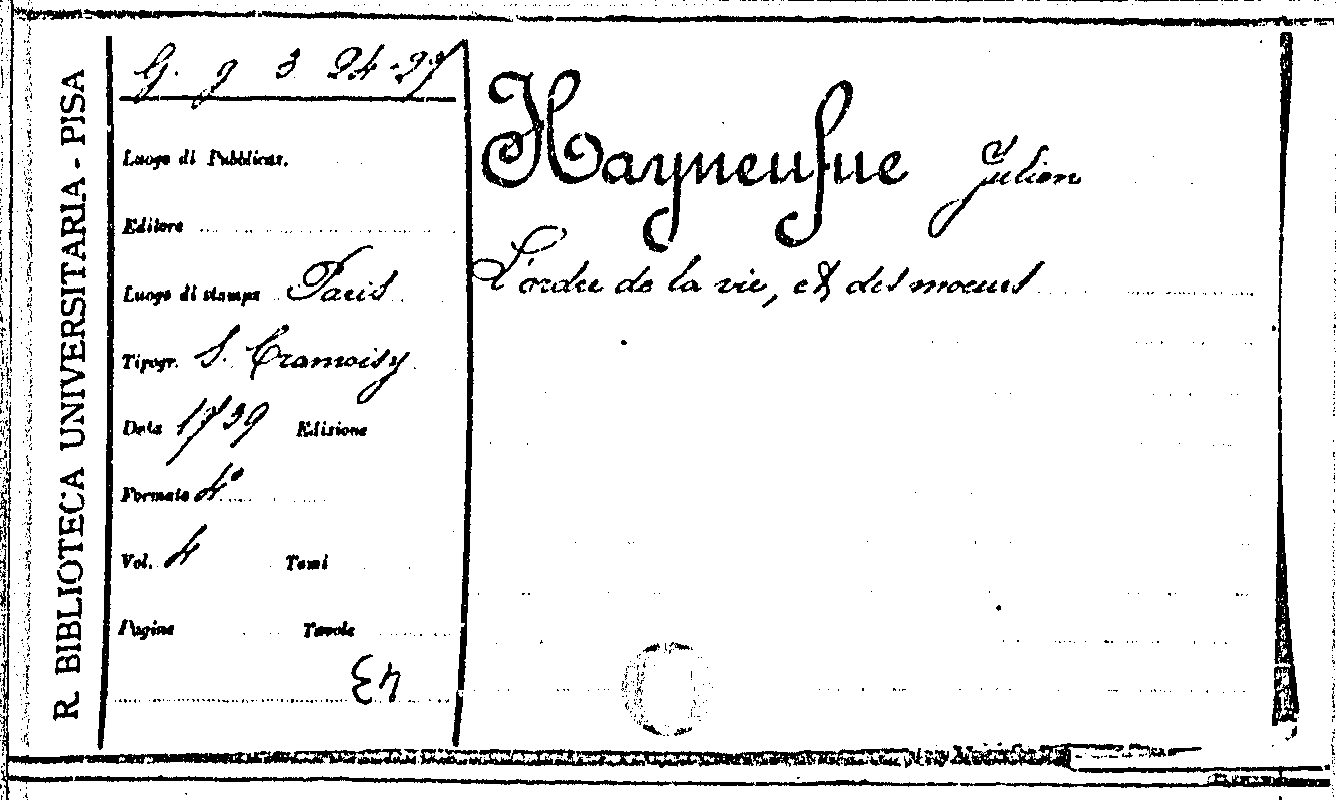 R. BIBLIOTECA UNIVERSITARIA - PISA
G. g 3 24-27
Luogo di Pubblicaz.
Editore
Luogo di stampa Paris
Tipogr. S. Cramoisy
Data 1739 Edizione
Formato 4°
Vol. 4 Tomi
Pagine Tavole
43
Hayneufue Julien
L'ordre de la vie, et des moeurs